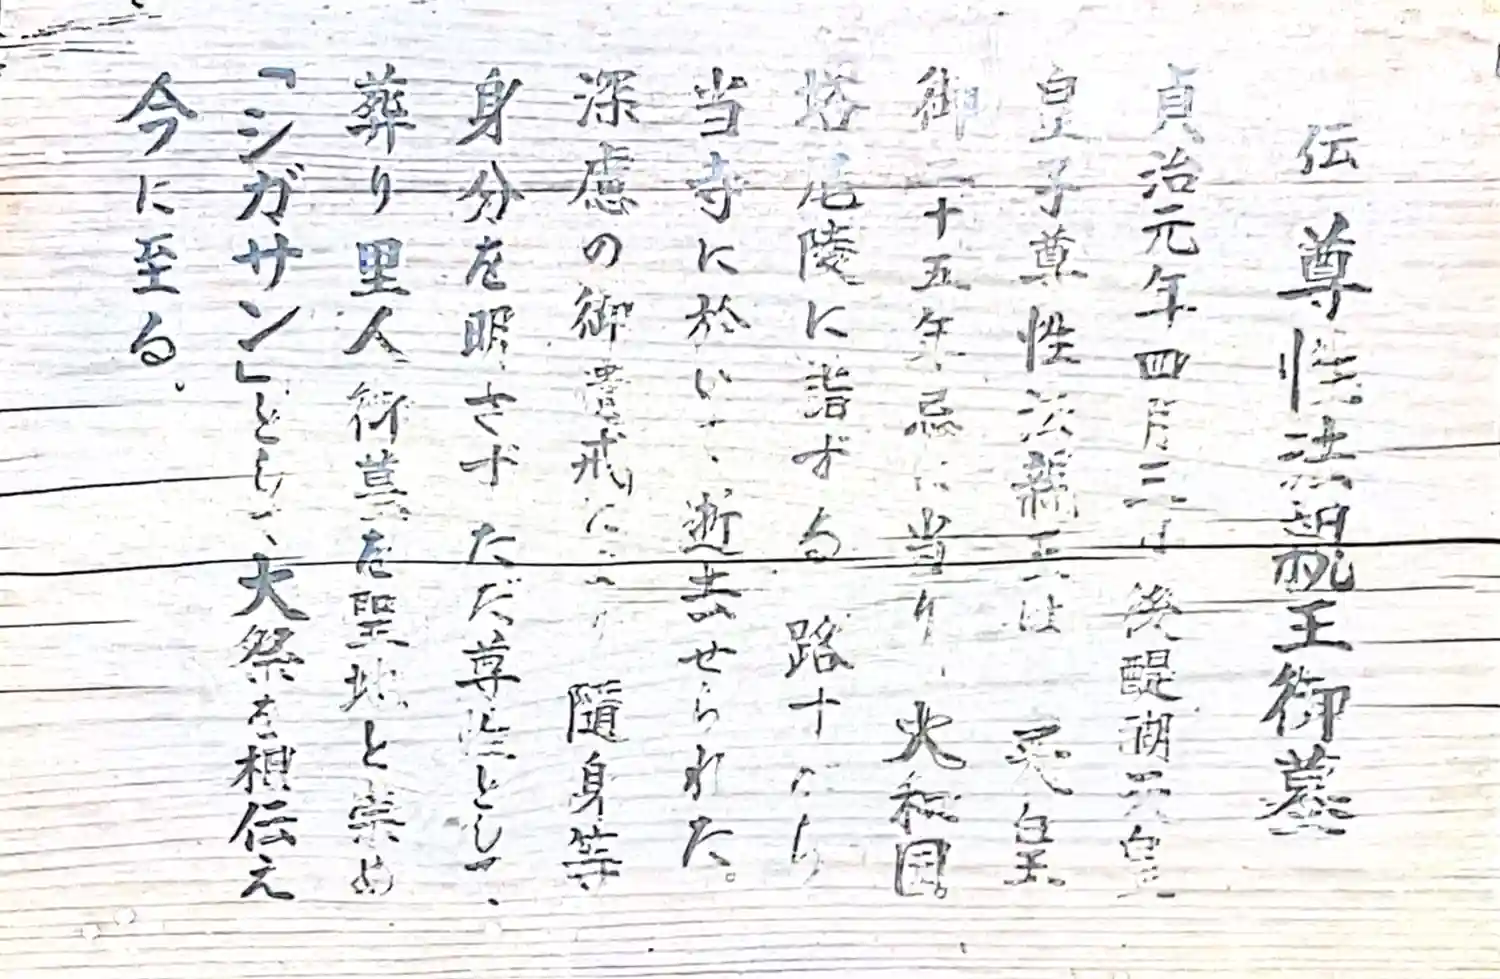 伝 尊性法親王御墓
貞治元年四月三日 後醍醐天皇
皇子尊性法親王は 天皇
御二十五年忌に当り、大和国
塔尾陵に詣ずる 路すがら
当寺に於いて、逝去せられた。
深慮の御遺戒により 随身等
身分を明さず ただ尊性として、
葬り里人御墓を聖地と崇め
「シガサン」として、大祭を相伝え
今に至る。